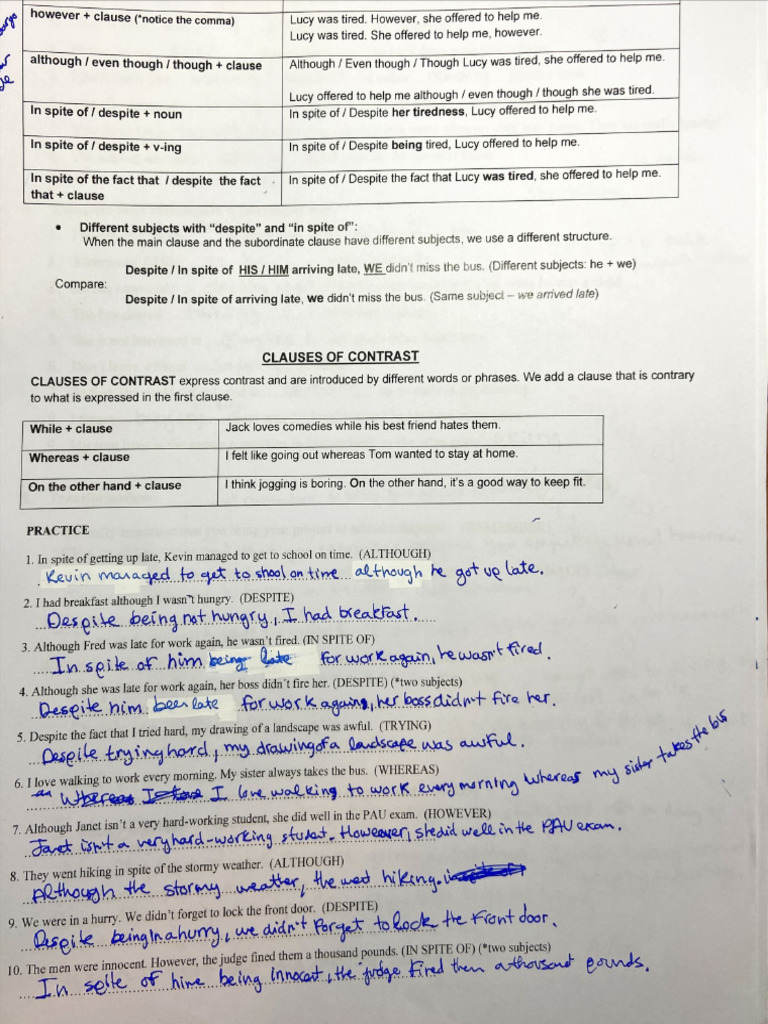 however + clause (*notice the comma)
Lucy was tired. However, she offered to help me.
Lucy was tired. She offered to help me, however.
although / even though / though + clause
Although / Even though / Though Lucy was tired, she offered to help me.
Lucy offered to help me although / even though / though she was tired.
In spite of / despite + noun
In spite of / Despite her tiredness, Lucy offered to help me.
In spite of / despite + v-ing
In spite of / Despite being tired, Lucy offered to help me.
In spite of the fact that / despite the fact that + clause
In spite of / Despite the fact that Lucy was tired, she offered to help me.
• Different subjects with "despite" and "in spite of":
When the main clause and the subordinate clause have different subjects, we use a different structure.
Despite / In spite of HIS / HIM arriving late, WE didn't miss the bus. (Different subjects: he + we)
Compare:
Despite / In spite of arriving late, we didn't miss the bus. (Same subject – we arrived late)
CLAUSES OF CONTRAST
CLAUSES OF CONTRAST express contrast and are introduced by different words or phrases. We add a clause that is contrary
to what is expressed in the first clause.
While + clause
Jack loves comedies while his best friend hates them.
Whereas + clause
I felt like going out whereas Tom wanted to stay at home.
On the other hand + clause
I think jogging is boring. On the other hand, it's a good way to keep fit.
PRACTICE
1. In spite of getting up late, Kevin managed to get to school on time. (ALTHOUGH)
Kevin managed to get to shool on time although he got up late.
2. I had breakfast although I wasn't hungry. (DESPITE)
Despite being not hungry, I had breakfast.
3. Although Fred was late for work again, he wasn't fired. (IN SPITE OF)
In spite of him being late for work again, he wasn't fired.
4. Although she was late for work again, her boss didn't fire her. (DESPITE) (*two subjects)
Despite him been late for work again, her boss didn't fire her.
5. Despite the fact that I tried hard, my drawing of a landscape was awful. (TRYING)
Despite trying hard, my drawing of a landscape was awful.
6. I love walking to work every morning. My sister always takes the bus. (WHEREAS)
I love walking to work every morning whereas my sister takes the bus
7. Although Janet isn't a very hard-working student, she did well in the PAU exam. (HOWEVER)
Janet isn't a very hard-working student. However, she did well in the PAU exam.
8. They went hiking in spite of the stormy weather. (ALTHOUGH)
Although the stormy weather, the went hiking.
9. We were in a hurry. We didn't forget to lock the front door. (DESPITE)
Despite being in a hurry, we didn't forget to lock the front door.
10. The men were innocent. However, the judge fined them a thousand pounds. (IN SPITE OF) (*two subjects)
In spite of hime being innocent, the judge fired them a thousant pounds.